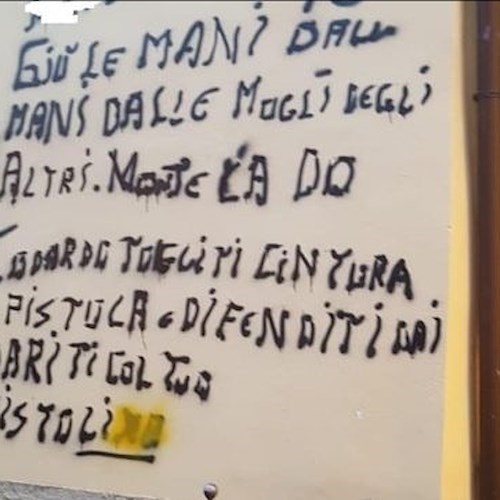 GIÙ LE MANI DALL
MANI DALLE MOGLI DEGLI
ALTRI. MONTE LA DO
DOARDO TOGLITI CINTURA
PISTOLA e DIFENDITI DAI
ARITI COL TUO
ISTOLI